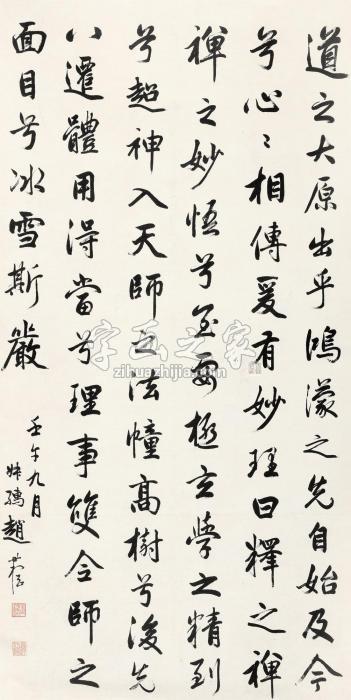 道之大原出乎鴻濛之先自始及今
兮心心相傳爰有妙理曰釋之禅
禅之妙悟兮至要極玄學之精到
兮超神入天師之法幢高樹兮後先
八還體用得當兮理事雙今師之
面目兮冰雪斯嚴
壬午九月
趙
字画之家
zihuazhijia.com